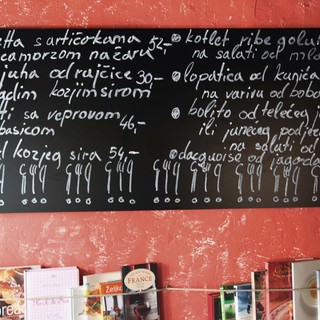 etta s artičokama 52,-
scamorzom na žaru
juha od rajčice 30,-
adim kozjim sirom
ti sa veprovom
basicom 46,-
d kozjeg sira 54,-
kotlet ribe golu
na salati od
lopatica od kunića
na varivu od bobo
bolito od telećeg j
ili junećeg podje
na salati od
dacquoise od jagoda
FRANCE
Željka
bread